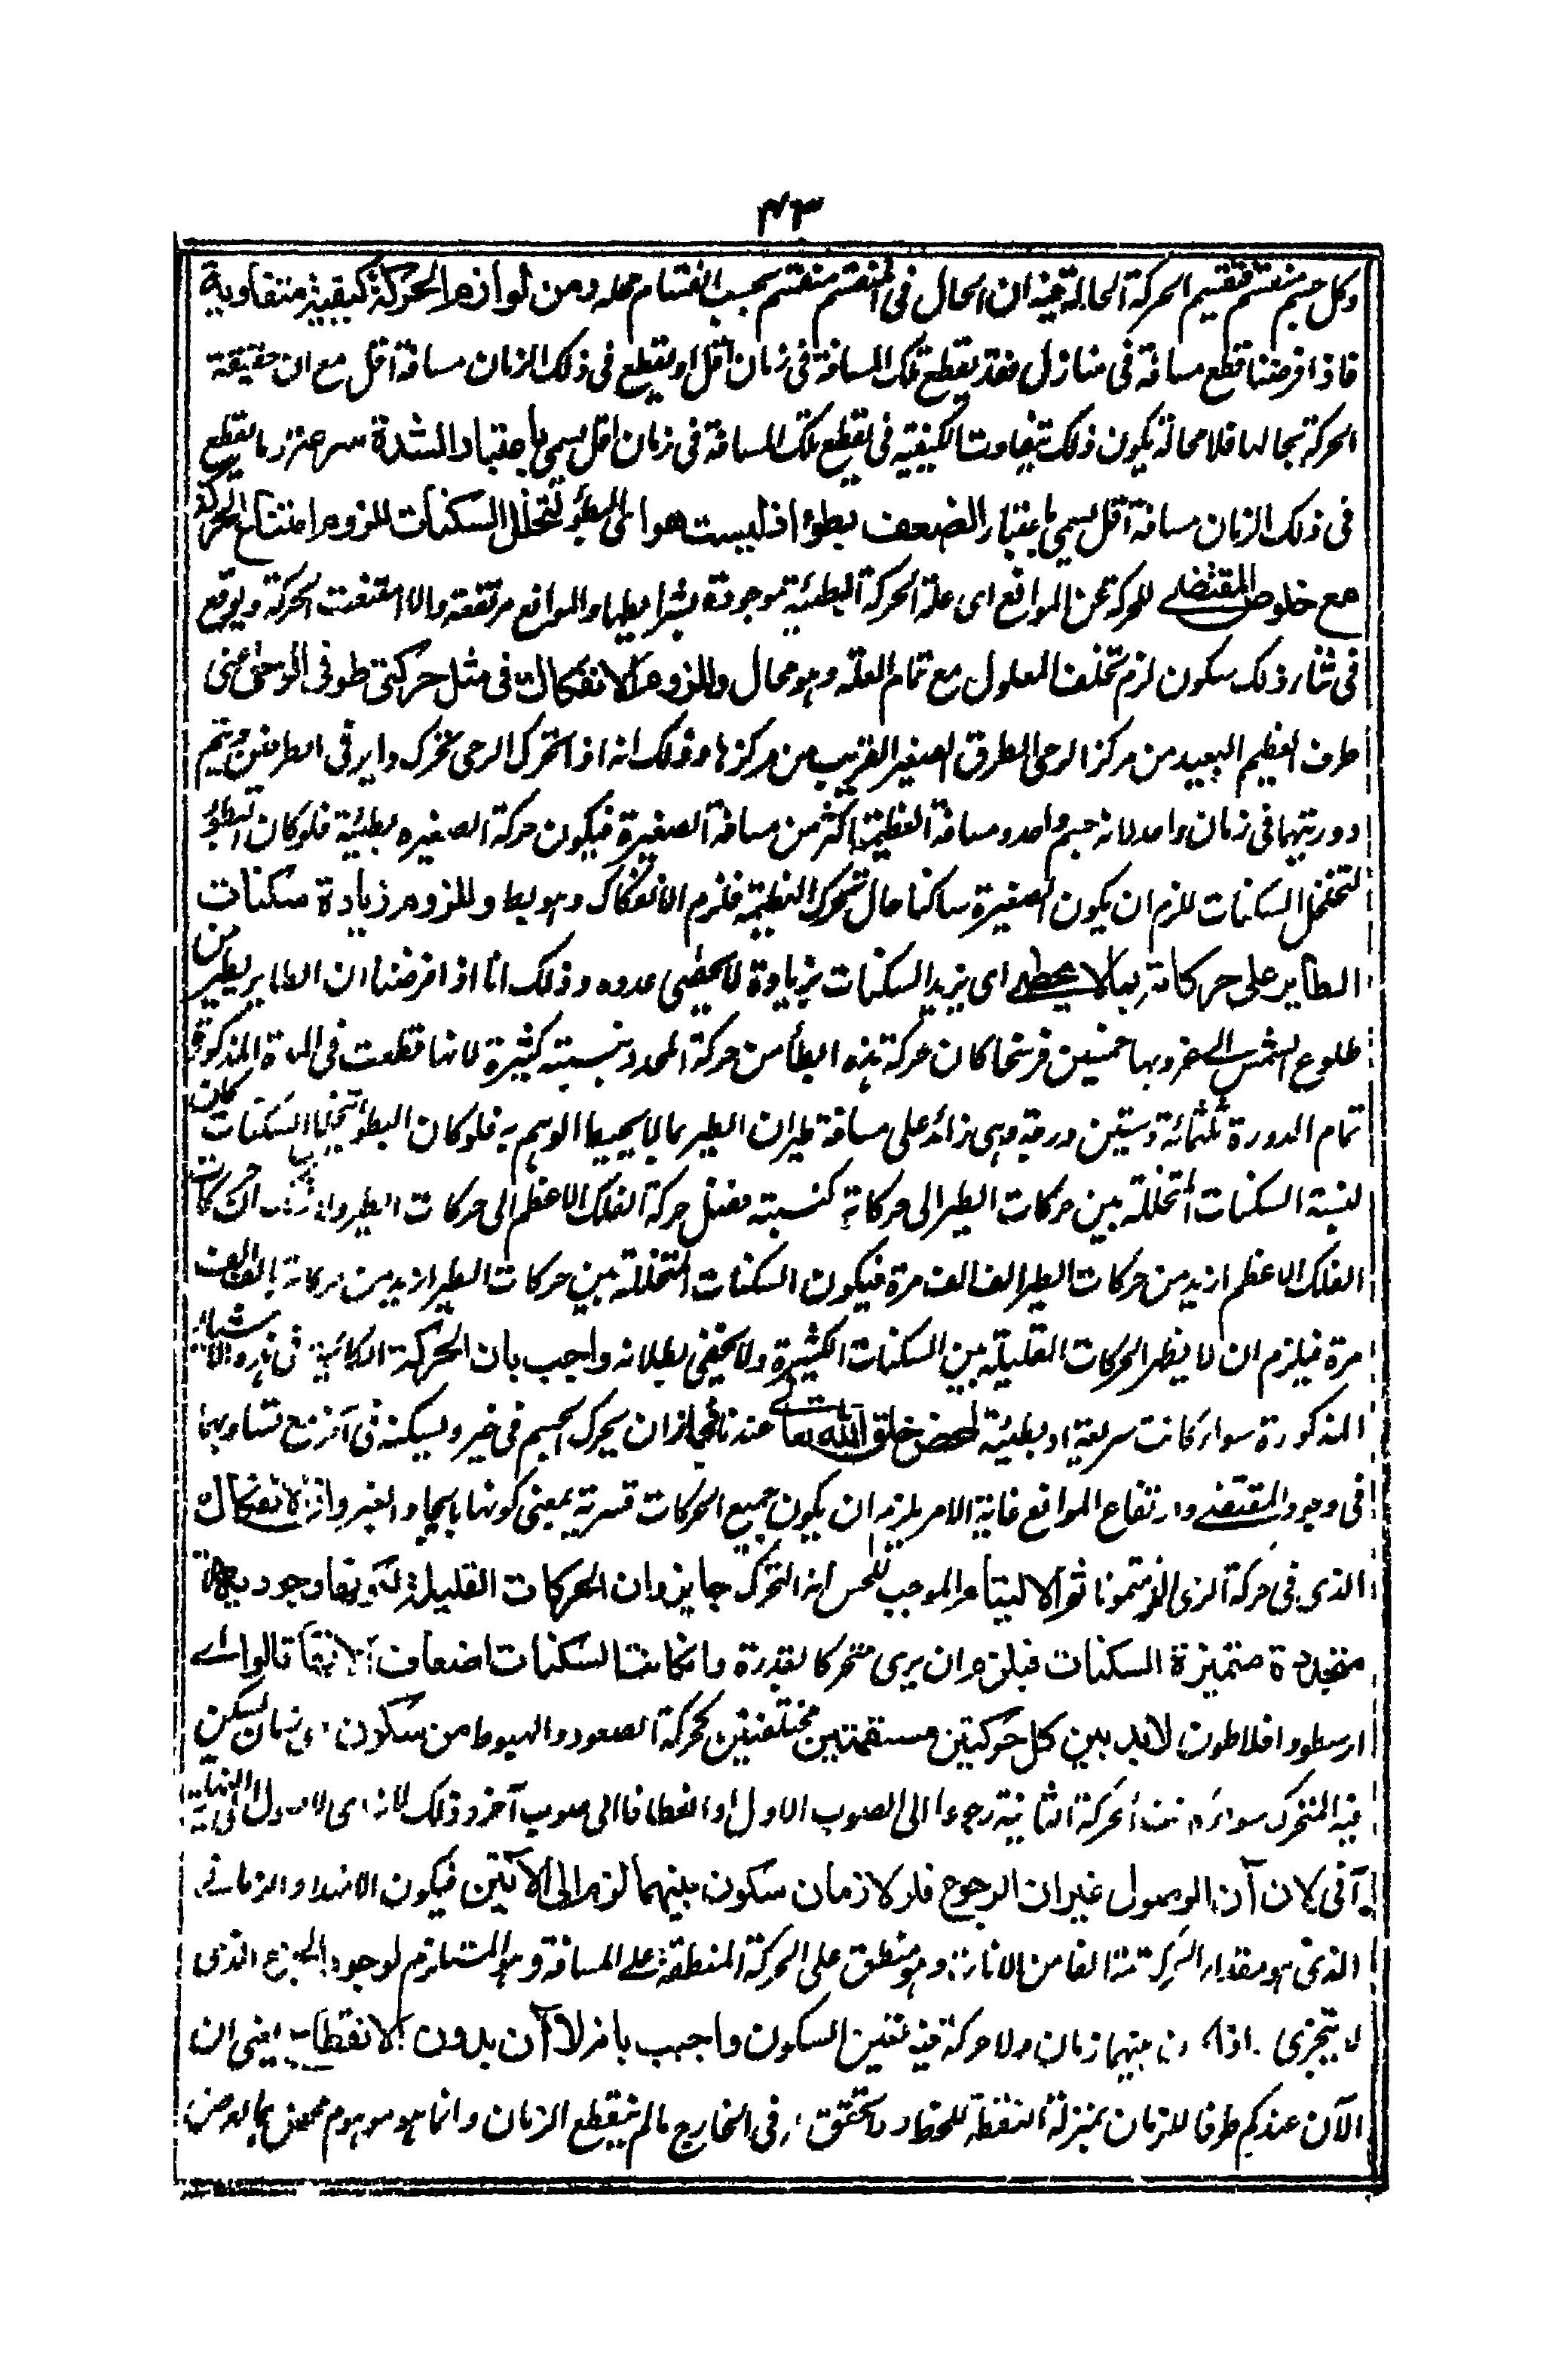 ٤٣
وكل جسم منقسم فتقسيم الحركة الحالة فيه ان الحال فى المنقسم منقسم بحسب انقسام محله ومن لوازم الحركة كيفية متفاوتة
فاذا فرضنا قطع مسافة فى منازل فقد يقطع تلك المسافة فى زمان اقل او يقطع فى ذلك الزمان مسافة اقل مع ان حقيقة
الحركة بحالها فلا محالة يكون ذلك بتفاوت الكيفية فى يقطع تلك المسافة فى زمان اقل يسمى باعتبار الشدة سرعة وما يقطع
فى ذلك الزمان مسافة اقل يسمى باعتبار الضعف بطوء اذ ليست هو اى البطؤ لتخلل السكنات للزوم امتناع الحركة
مع خلوص المقتضى للحركة عن الموانع اى علة الحركة البطيئة موجودة بشرايطها والموانع مرتفعة والا امتنعت الحركة ويوقع
فى اثناء ذلك سكون لزم تخلف المعلول مع تمام العلة وهو محال وللزوم الانفكاك فى مثل حركتى طوفى الرحى اعنى
طرف العظيم البعيد من مركز الرحى الطرق الصغير القريب من مركزها وذلك انه اذا تحرك الرحى تحرك دايرتى الطرفين ويتم
دورتيهما فى زمان واحد لانه جسم واحد ومسافة العظيمة اكثر من مسافة الصغيرة فيكون حركة الصغيره بطيئة فلوكان البطؤ
لتخلل السكنات للزم ان يكون الصغيرة ساكنا حال تحرك العظيمة فلزم الانفكاك وهو بط وللزوم زيادة سكنات
الطاير على حركاته بما لا يحصى اى يزيد السكنات بزيادة لا يحصى عدوه وذلك انا اذا فرضنا ان الطاير يطير من
طلوع الشمس الى غروبها خمسين فرسخا كان حركة هذه ابطأ من حركة المحدد بنسبته كثيرة لانها قطعت فى المدة المذكورة
تمام الدورة ثلثمائة وستين درجة وهى زائد على مسافة طيران الطير بما لا يحيط الوهم به فلوكان البطؤ لتخلل السكنات كان
لنسبة السكنات المتخللة بين حركات الطير الى حركاته كنسبته فضل حركة الفلك الاعظم الى حركات الطير ان حركات
الفلك الاعظم ازيد من حركات الطير الف الف مرة فيكون السكنات المتخللة بين حركات الطير ازيد من حركاته بالف الف
مرة فيلزم ان لا يظهر الحركات القليلة بين السكنات الكثيرة ولا يخفى بطلانه واجيب بان الحركة الكائنية فى هذه الاشياء
المذكورة سواء كانت سريعة او بطيئة لمحض خلق الله تعالى عندنا فجاز ان يحرك الجسم فى خير ويسكنه فى آخر مع تساويهما
فى وجود المقتضى وارتفاع الموانع غاية الامر يلزمه ان يكون جميع الحركات قسرية بمعنى كونها بايجاد الغير وان الانفكاك
الذى فى حركة الرحى الالتيام الموجب للحس انه التحرك جايز وان الحركات القليلة
متجددة متميزة السكنات فيلزم ان يرى متحركا لقدرة وانكانت السكنات اضعاف قالوا اے
ارسطو وافلاطون لابد بين كل حركتين مستقيمتين مختلفتين كحركة الصعود والهبوط من سكون اى زمان يسكن
فيه المتحرك سواء كانت الحركة الثانية رجوعا الى الصوب الاول او انعطافا الى صوب آخر وذلك لانه اى لا صول الى النهاية
آنى لان آن الوصول غير ان الرجوع فلو لا زمان سكون بينهما لزم الى الآنين فيكون الامتداد الزمانى
الذى هو مقدار الحركة متالفا من الانات وهو منطبق على الحركة المنطبقة على المسافة وهو المستلزم لوجود الجزء الذى
لا يتجزى بينهما زمان ولا حركة فيه تعين السكون واجيب بانه لا آن بدون الانقطاع يعنى ان
الآن عندكم طرفا للزمان بمنزلة النقطة للخط ولا تحقق له فى الخارج مالم ينقطع الزمان وانما هو موهوم محض بما يعرض